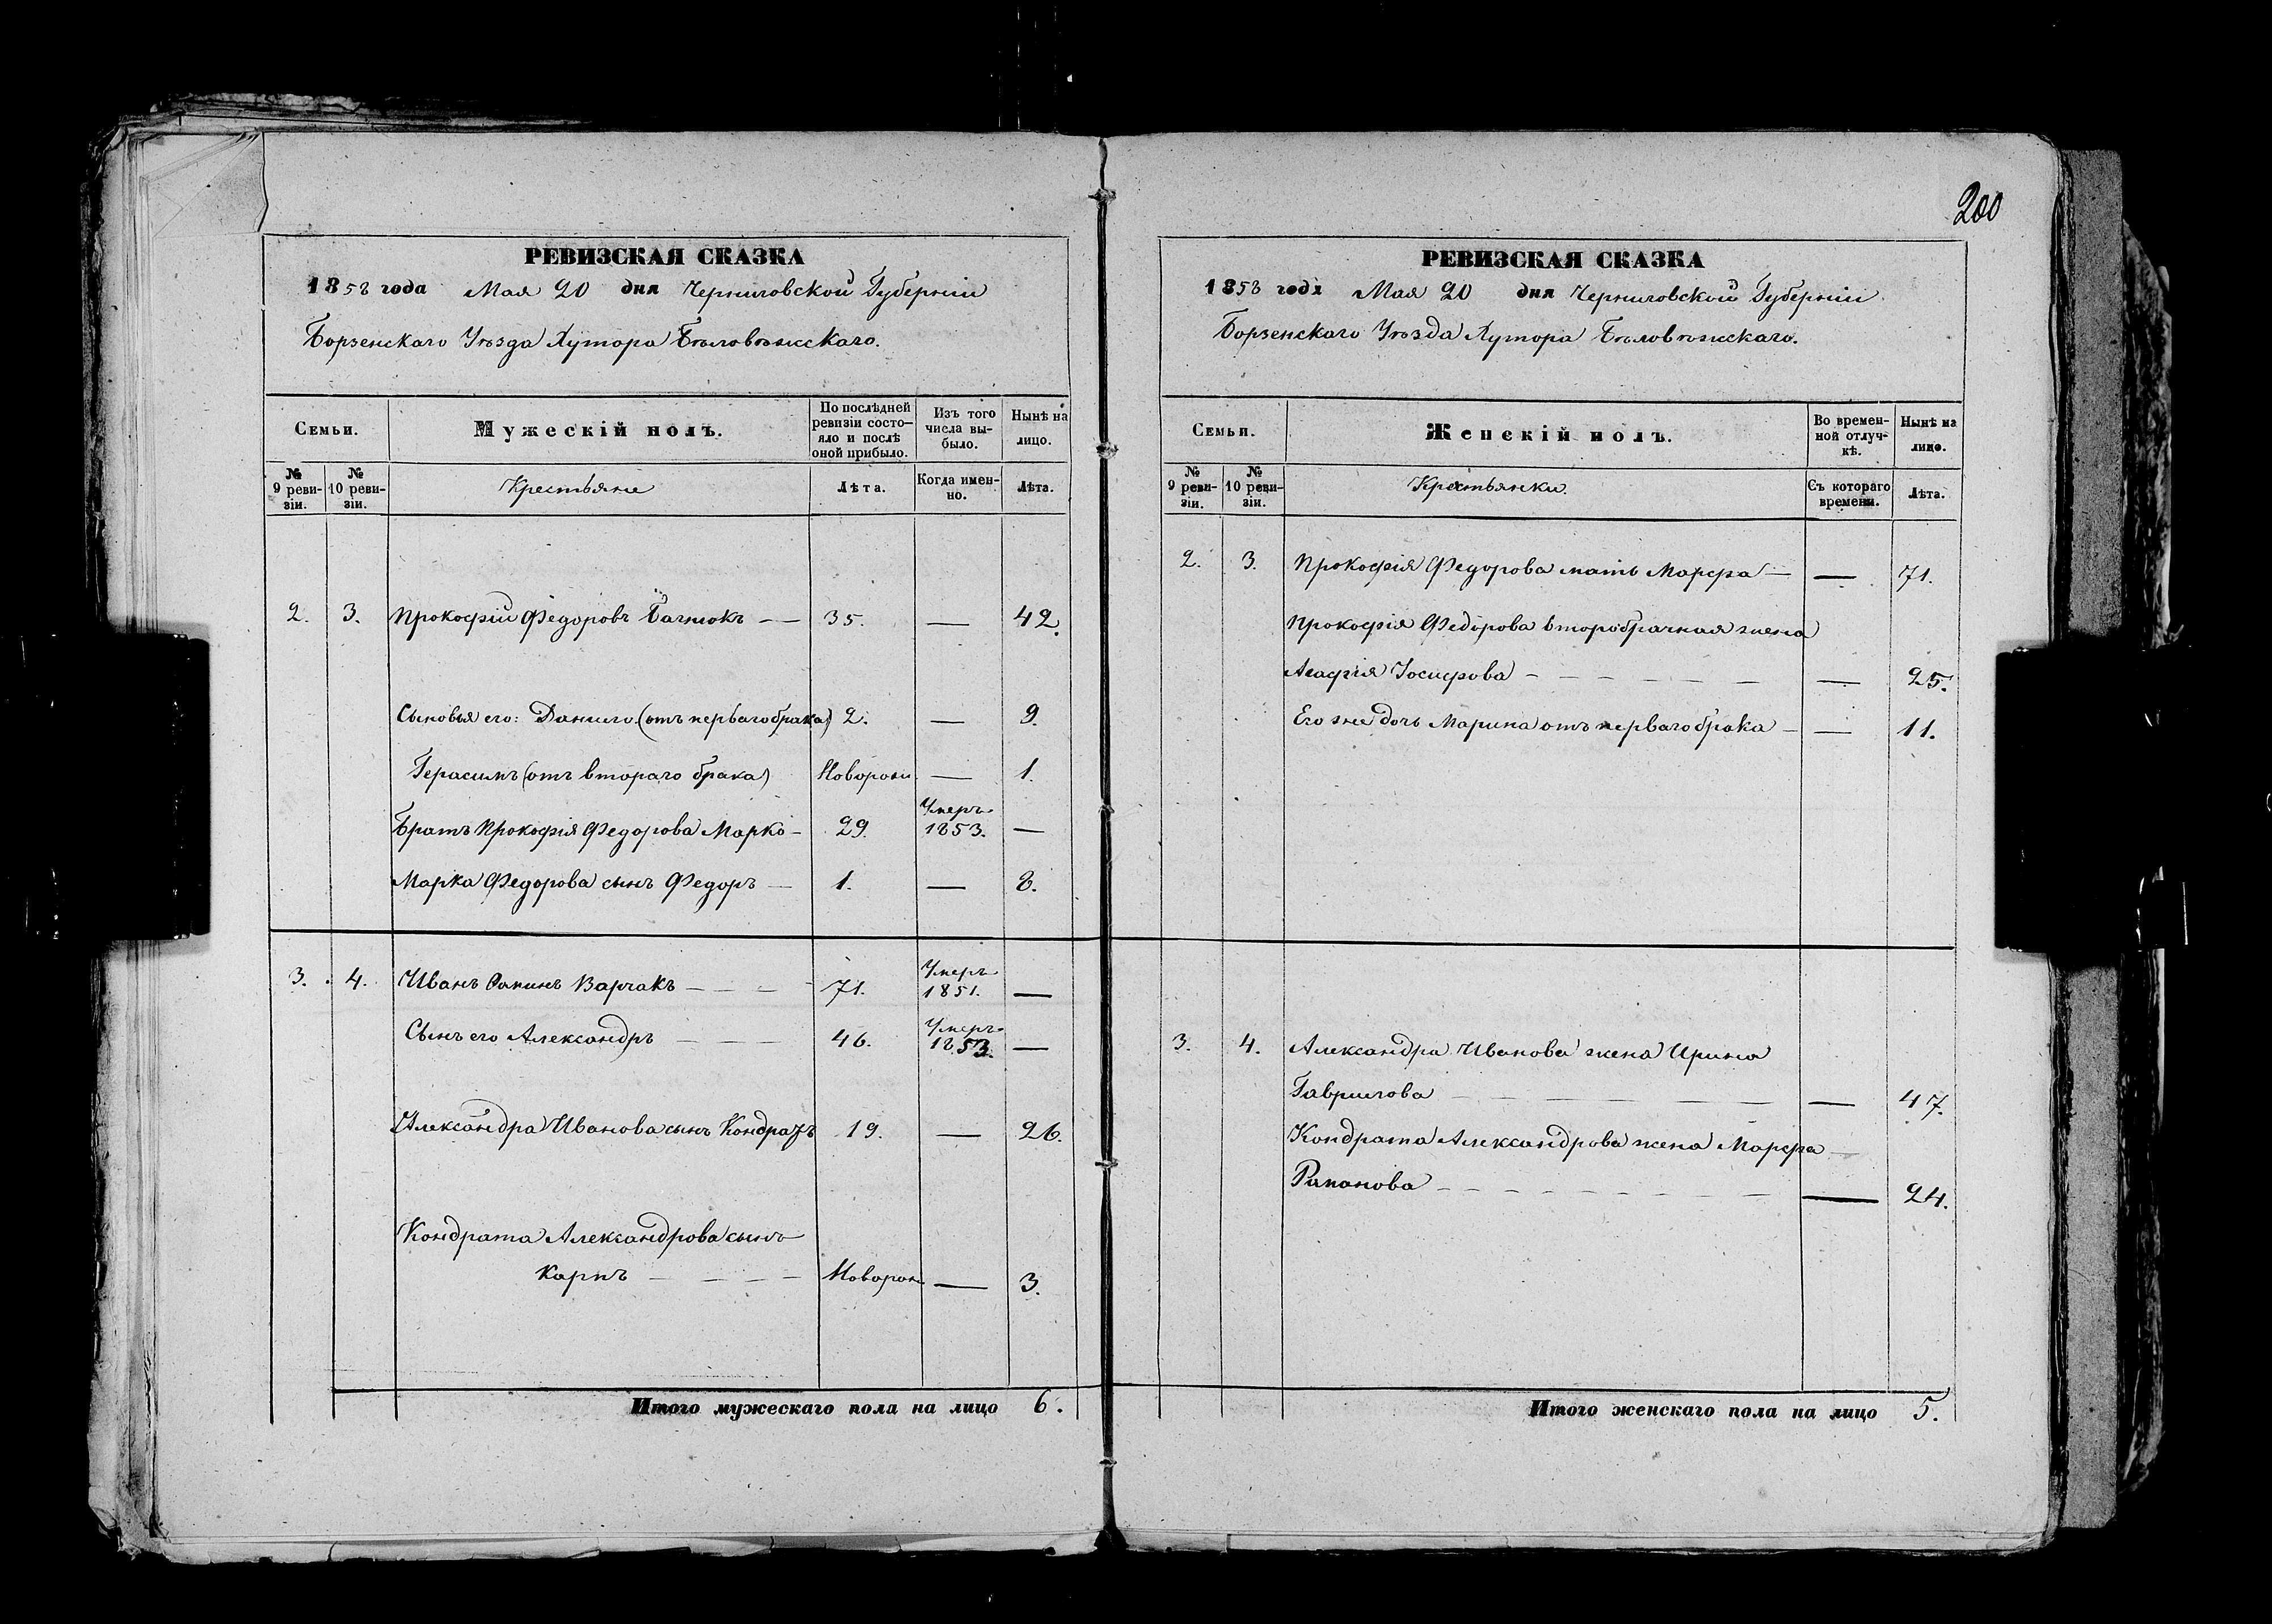 200
РЕВИЗСКАЯ СКАЗКА
1858 года Мая 20 дня Черниговской Губерніи
Борзенскаго Уѣзда Хутора Бѣловѣжскаго.
Семьи.
Мужескій полъ.
По послѣдней
ревизіи состо-
яло и послѣ
оной прибыло.
Изъ того
числа вы-
было.
Нынѣ на
лицо.
№
9 реви-
зіи.
№
10 реви-
зіи.
Крестьяне
Лѣта.
Когда имен-
но.
Лѣта.
2. 3. Прокофій Федоровъ — 35. — 42.
Сыновья его: Данило (отъ перваго брака) 2. — 9.
Герасимъ (отъ втораго брака) Новорож — 1.
Братъ Прокофія Федорова Марко — 29. Умеръ 1853. —
Марка Федорова сынъ Федоръ — 1. — 8.
3. 4. Иванъ Варчакъ — 71. Умеръ 1851. —
Сынъ его Александръ — 46. Умеръ 1853. —
Александра Иванова сынъ Кондратъ 19. — 26.
Кондрата Александрова сынъ
Карпъ — Новорож — 3.
Итого мужескаго пола на лицо 6.
РЕВИЗСКАЯ СКАЗКА
1858 года Мая 20 дня Черниговской Губерніи
Борзенскаго Уѣзда Хутора Бѣловѣжскаго.
Семьи.
Женскій полъ.
Во времен-
ной отлуч-
кѣ.
Нынѣ на
лицо.
№
9 реви-
зіи.
№
10 реви-
зіи.
Крестьянки.
Съ котораго
времени.
Лѣта.
2. 3. Прокофія Федорова мать Марфа — — 71.
Прокофія Федорова второбрачная жена
Агафія Іосифова — — 25.
Его же дочь Марина отъ перваго брака — — 11.
3. 4. Александра Иванова жена Ирина
Гаврилова — — 47.
Кондрата Александрова жена Марфа —
— — 24.
Итого женскаго пола на лицо 5.